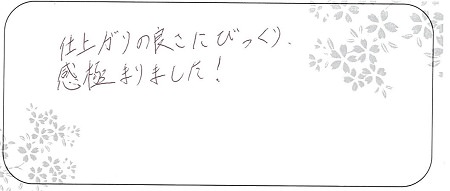 仕上がりの良さにびっくり、
感極まりました!